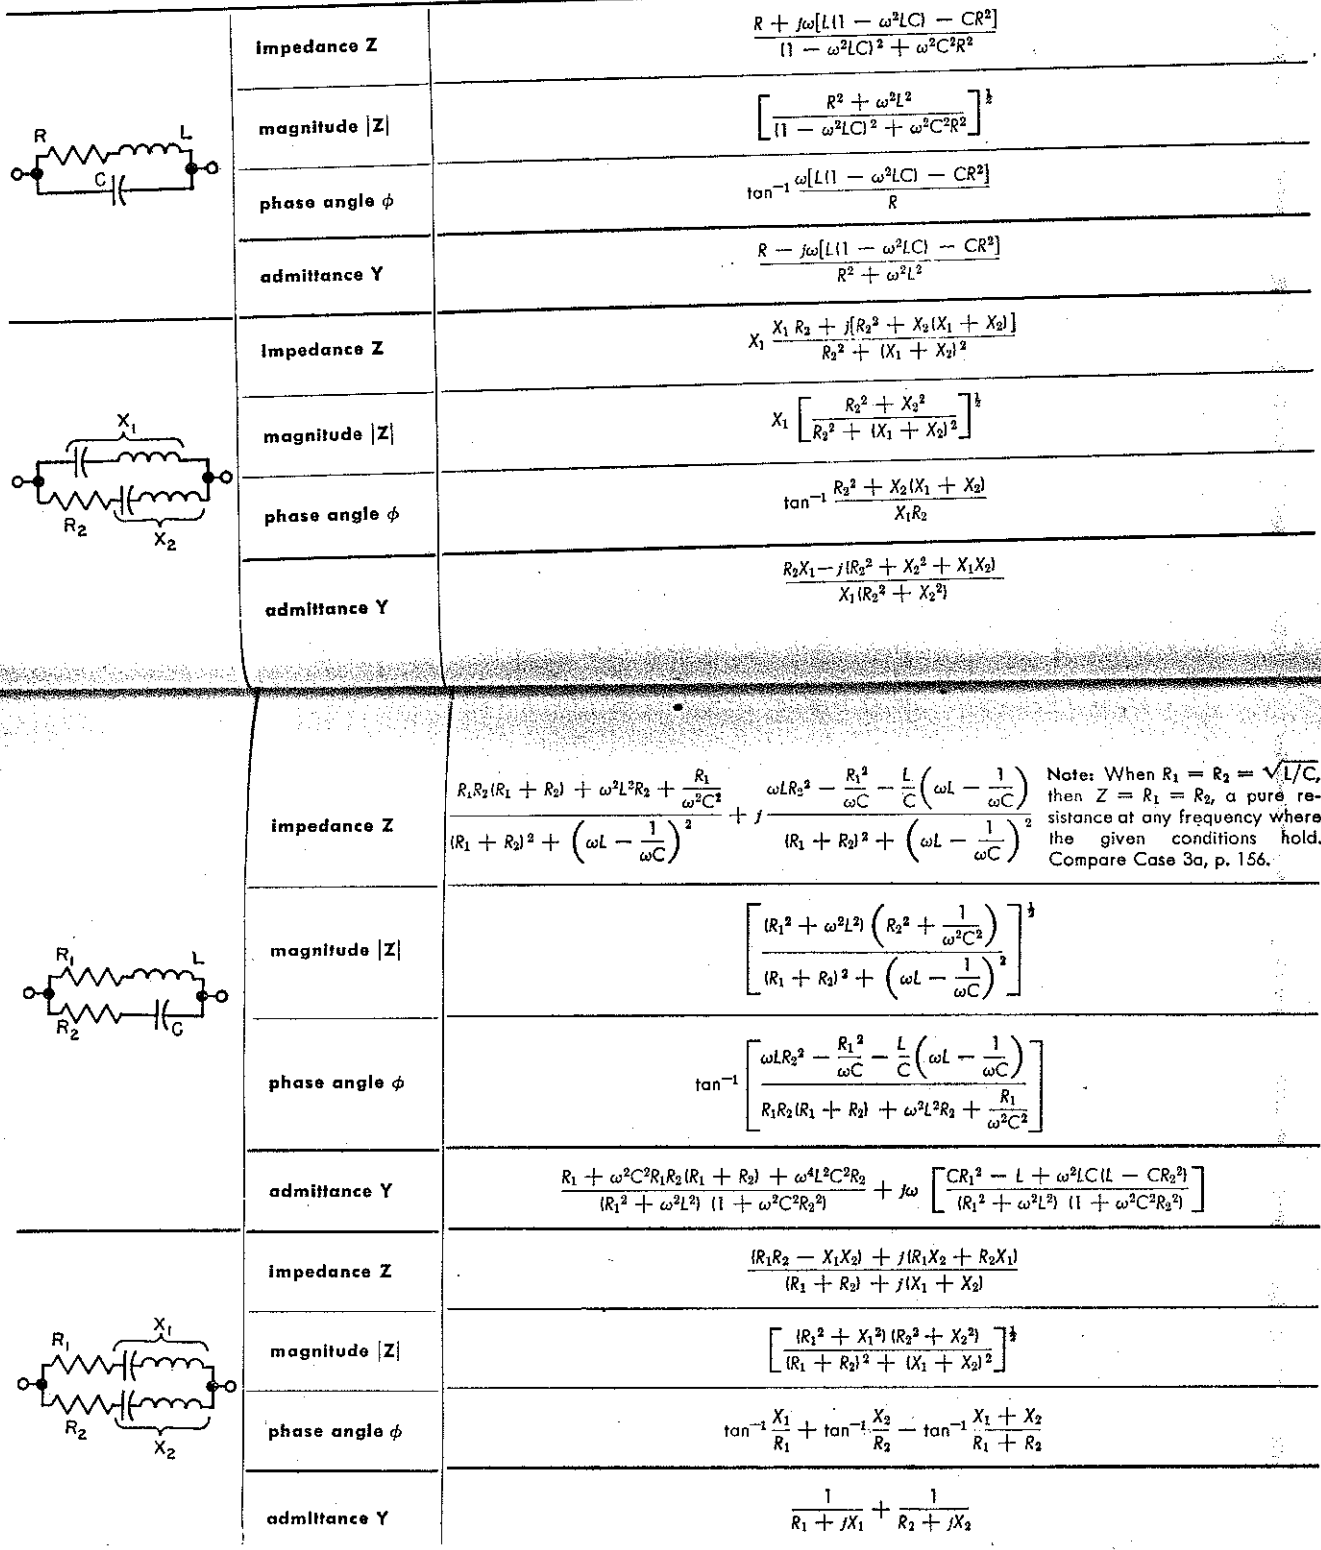 impedance Z
R + jω[L(1 − ω²LC) − CR²] / (1 − ω²LC)² + ω²C²R²
R L C
magnitude |Z|
[ R² + ω²L² / (1 − ω²LC)² + ω²C²R² ]^½
phase angle φ
tan⁻¹ ω[L(1 − ω²LC) − CR²] / R
admittance Y
R − jω[L(1 − ω²LC) − CR²] / R² + ω²L²
impedance Z
X₁ X₁ R₂ + j[R₂² + X₂(X₁ + X₂)] / R₂² + (X₁ + X₂)²
X₁
R₂ X₂
magnitude |Z|
X₁ [ R₂² + X₂² / R₂² + (X₁ + X₂)² ]^½
phase angle φ
tan⁻¹ R₂² + X₂(X₁ + X₂) / X₁R₂
admittance Y
R₂X₁ − j(R₂² + X₂² + X₁X₂) / X₁(R₂² + X₂²)
impedance Z
R₁R₂(R₁ + R₂) + ω²L²R₂ + R₁/ω²C² / (R₁ + R₂)² + (ωL − 1/ωC)² + j ωLR₂² − R₁²/ωC − L/C (ωL − 1/ωC) / (R₁ + R₂)² + (ωL − 1/ωC)²
Note: When R₁ = R₂ = √L/C,
then Z = R₁ = R₂, a pure re-
sistance at any frequency where
the given conditions hold.
Compare Case 3a, p. 156.
R₁ L
R₂ C
magnitude |Z|
[ (R₁² + ω²L²) (R₂² + 1/ω²C²) / (R₁ + R₂)² + (ωL − 1/ωC)² ]^½
phase angle φ
tan⁻¹ [ ωLR₂² − R₁²/ωC − L/C (ωL − 1/ωC) / R₁R₂(R₁ + R₂) + ω²L²R₂ + R₁/ω²C² ]
admittance Y
R₁ + ω²C²R₁R₂(R₁ + R₂) + ω⁴L²C²R₂ / (R₁² + ω²L²) (1 + ω²C²R₂²) + jω [ CR₁² − L + ω²LC(L − CR₂²) / (R₁² + ω²L²) (1 + ω²C²R₂²) ]
impedance Z
(R₁R₂ − X₁X₂) + j(R₁X₂ + R₂X₁) / (R₁ + R₂) + j(X₁ + X₂)
R₁ X₁
R₂ X₂
magnitude |Z|
[ (R₁² + X₁²) (R₂² + X₂²) / (R₁ + R₂)² + (X₁ + X₂)² ]^½
phase angle φ
tan⁻¹ X₁/R₁ + tan⁻¹ X₂/R₂ − tan⁻¹ X₁ + X₂ / R₁ + R₂
admittance Y
1 / R₁ + jX₁ + 1 / R₂ + jX₂